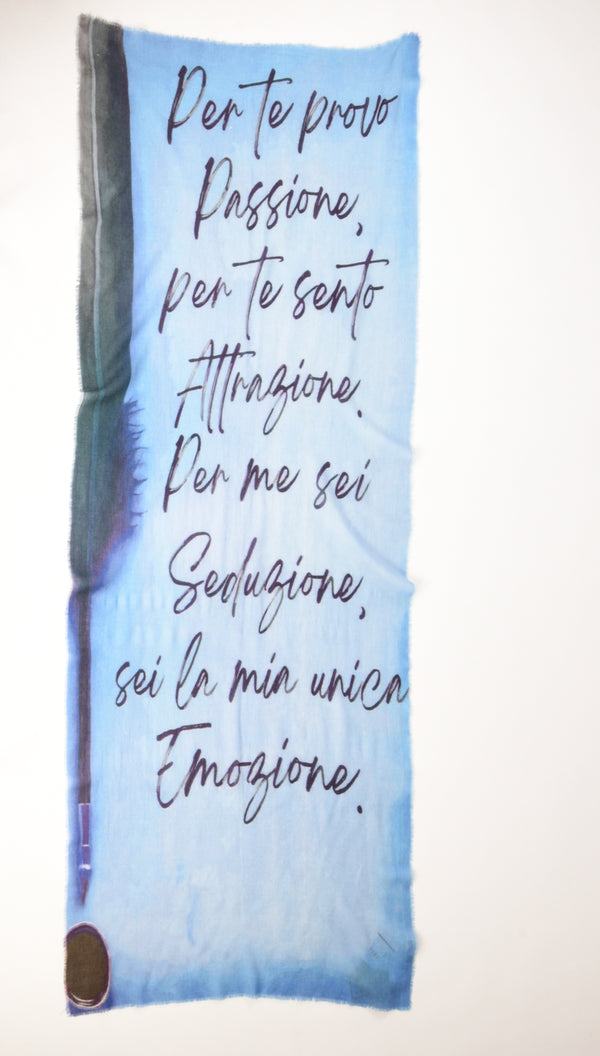 Per te provo
Passione,
per te sento
Attrazione.
Per me sei
Seduzione,
sei la mia unica
Emozione.